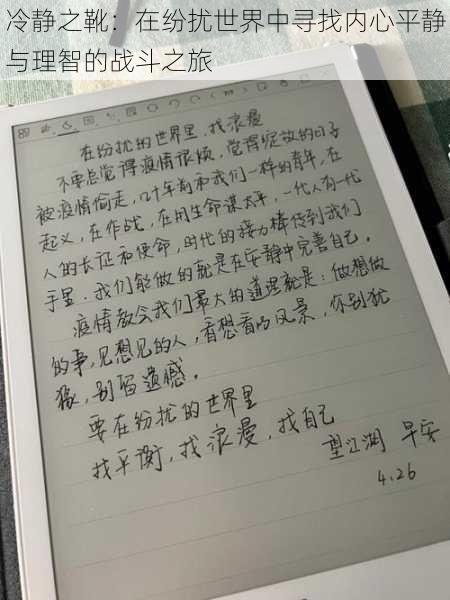 冷静之靴：在纷扰世界中寻找内心平静
与理智的战斗之旅
在纷扰的世界里，找浪漫
不要总觉得疫情很烦，觉得绽放的日子
被疫情偷走，叶年前和我们一样的青年，在
起义，在作战，在用生命谋太平，一代人有一代
人的长征和使命，时代的接力棒传到我们
手里，我们能做的就是在安静中完善自己。
疫情教会我们最大的道理就是：做想做
的事，见想见的人，看想看的风景，你别犹
豫，别留遗憾。
要在纷扰的世界里
找平衡，找浪漫，找自己
望江澜 早安
4.26